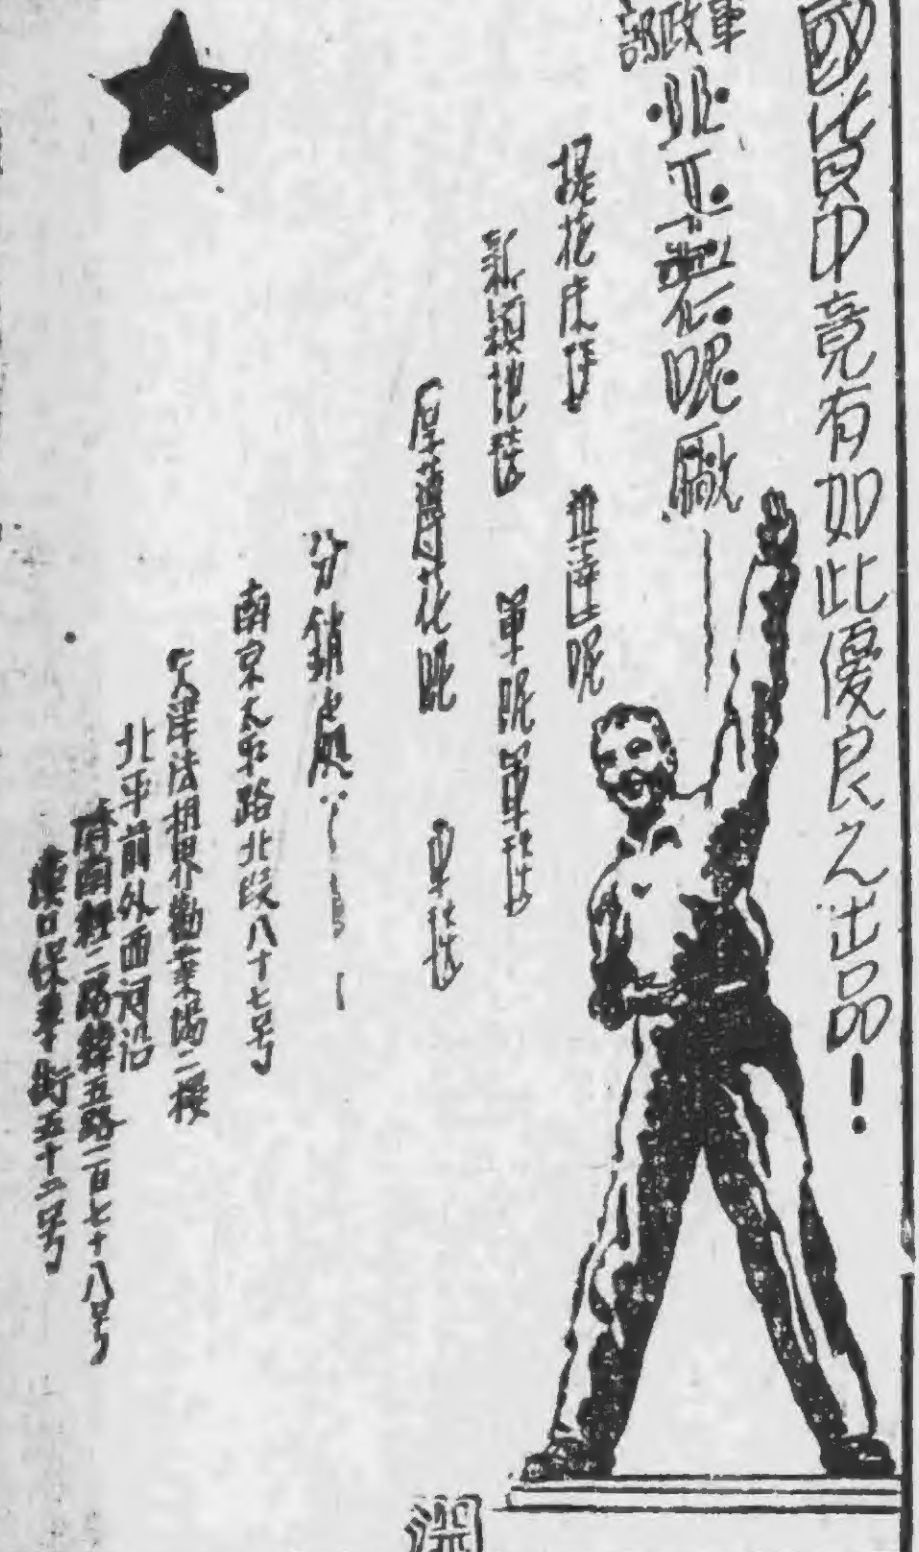 國貨中竟有如此優良之出品!
軍政部
北平製呢廠
提花床毯 直貢呢
新穎地毯 軍呢軍毯
厚薄花呢 車毯
分銷處
南京太平路北段八十七号
天津法租界勸業場二樓
北平前外西河沿
濟南經二路緯五路一百七十八号
漢口保華街五十二号